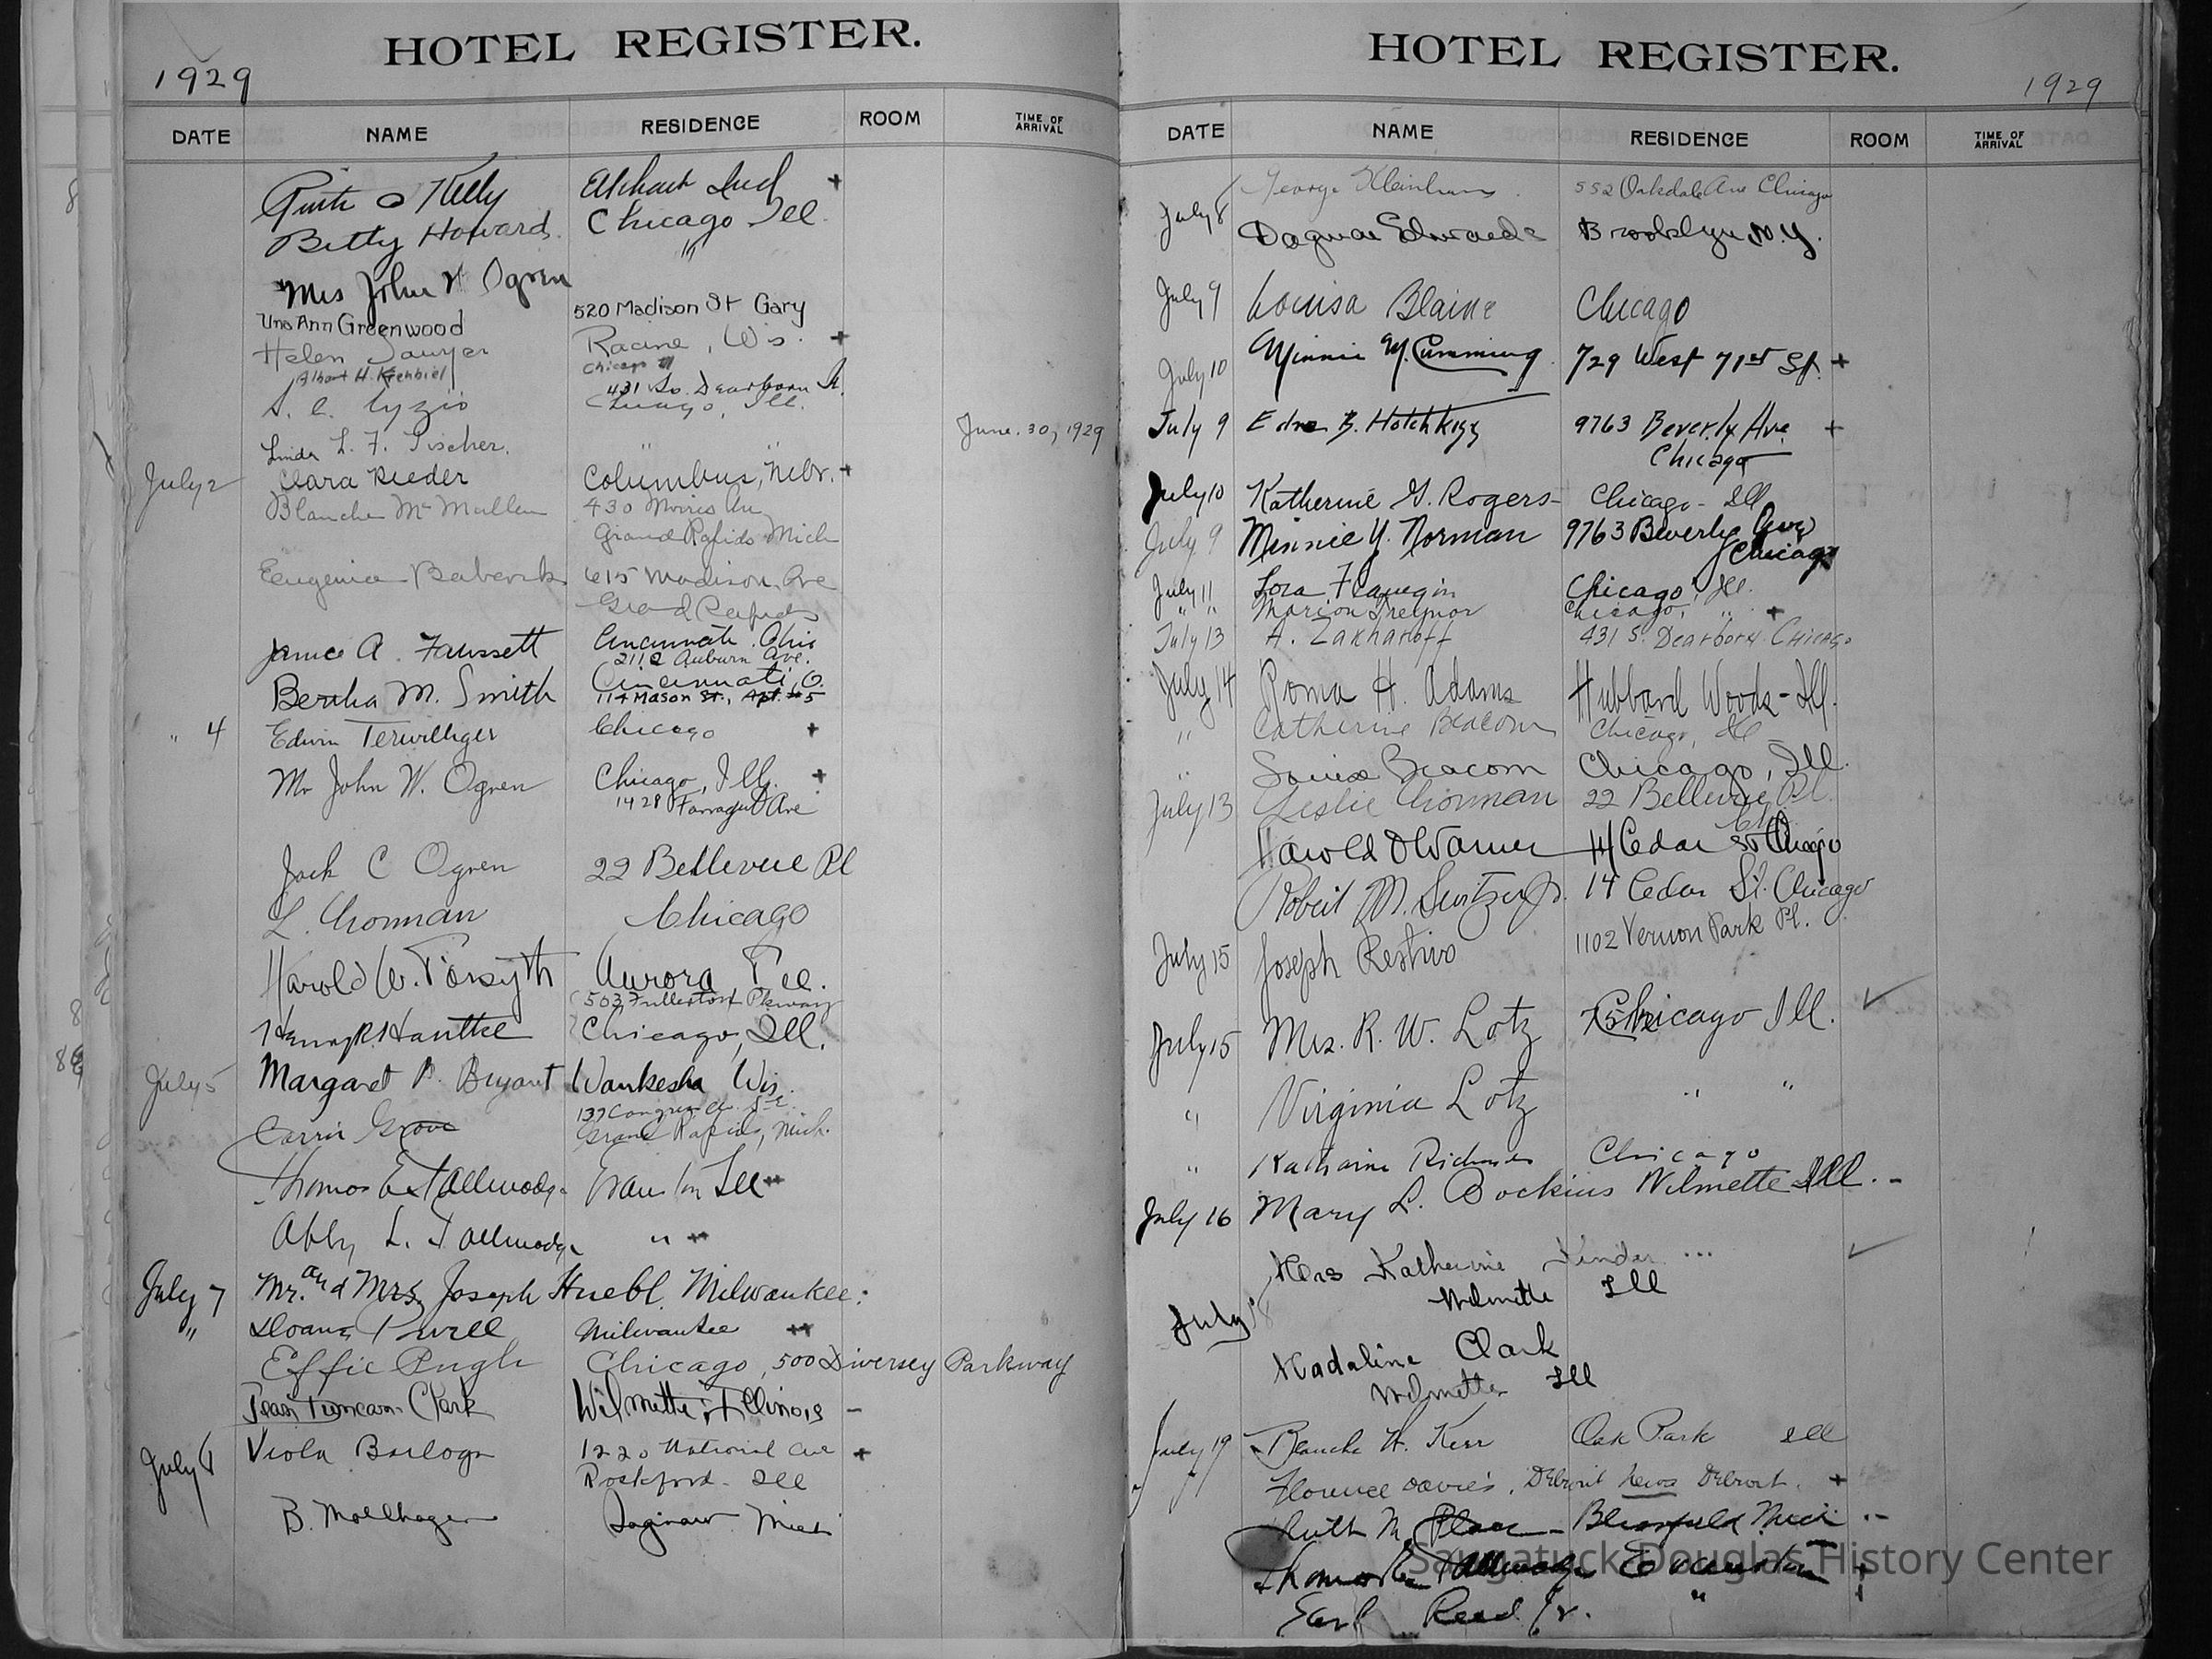 HOTEL REGISTER.
1929
DATE NAME RESIDENCE ROOM TIME OF ARRIVAL
Ruth O Kelly Elkhart Ind +
Betty Howard Chicago Ill.
Mrs John W Ogren "
Una Ann Greenwood 520 Madison St Gary
Helen Sawyer Racine, Wis. +
Albert H. Krehbiel Chicago Ill
431 So. Dearborn St.
S. C. Lyzio Chicago, Ill.
June. 30, 1929
Linda L. F. Fischer. " "
July 2 Clara Rieder Columbus, Nebr. +
Blanche McMullen 430 Morris Av
Grand Rapids Mich
Eugenia 615 Madison Ave
Grand Rapids
Janice A. Faussett Cincinnati. Ohio
2112 Auburn Ave.
Bertha M. Smith Cincinnati, O.
114 Mason St., Apt. #5
" 4 Edwin Terwilliger Chicago +
Mr John W. Ogren Chicago, Ill. +
1428 Farragut Ave
Jack C Ogren 22 Bellevue Pl
L. Chorman Chicago
Harold W. Forsyth Aurora Ill.
503 Fullerton Pkway
Chicago, Ill.
July 5 Margaret B. Bryant Waukesha Wis.
137 Congress St
Carrie Grove Grand Rapids, Mich.
Thomas E. Tallmadge Evanston Ill
Abby L. Tallmadge " "
July 7 Mr. and Mrs Joseph Huebl. Milwaukee.
" Powell Milwaukee
Effie Pugh Chicago, 500 Diversey Parkway
Jean Duncan Clark Wilmette, Illinois -
July 8 Viola 1220 National Ave +
Rockford - Ill
B. Mollhagen Saginaw Mich
HOTEL REGISTER.
1929
DATE NAME RESIDENCE ROOM TIME OF ARRIVAL
George Kleinhans. 552 Oakdale Ave Chicago
July 8 Dagmar Edwards Brooklyn N.Y.
July 9 Louisa Blaine Chicago
July 10 Minnie M. Cumming 729 West 71st St. +
July 9 Edna B. Hotchkiss 9763 Beverly Ave. +
Chicago
July 10 Katherine G. Rogers Chicago - Ill
July 9 Minnie Y. Norman 9763 Beverly Ave
Chicago
July 11 Lora Chicago, Ill.
" " Marion Treynor Chicago, " +
July 13 A. Zakharoff 431 S. Dearborn Chicago
July 14 Roma H. Adams Hubbard Woods - Ill.
" Catherine Beacom Chicago, Ill
" Louise Beacom Chicago, Ill.
July 13 Leslie Chorman 22 Bellevue Pl.
Chi.
Harold O Warner 14 Cedar St Chicago
Robert M. Jr. 14 Cedar St. Chicago
July 15 Joseph Restivo 1102 Vernon Park Pl.
July 15 Mrs. R. W. Lotz Chicago Ill.
" Virginia Lotz " "
" Katharine Chicago
July 16 Mary L. Dockins Wilmette Ill. -
Mrs Katherine
Wilmette Ill
July 18
Madaline Clark
Wilmette Ill
July 19 Blanche H. Kerr Oak Park Ill
Florence Davies, Detroit News Detroit. +
Ruth M. Place - Mich. -
Thomas E. Tallmadge Evanston
Earl Reed Jr. "
Saugatuck Douglas History Center